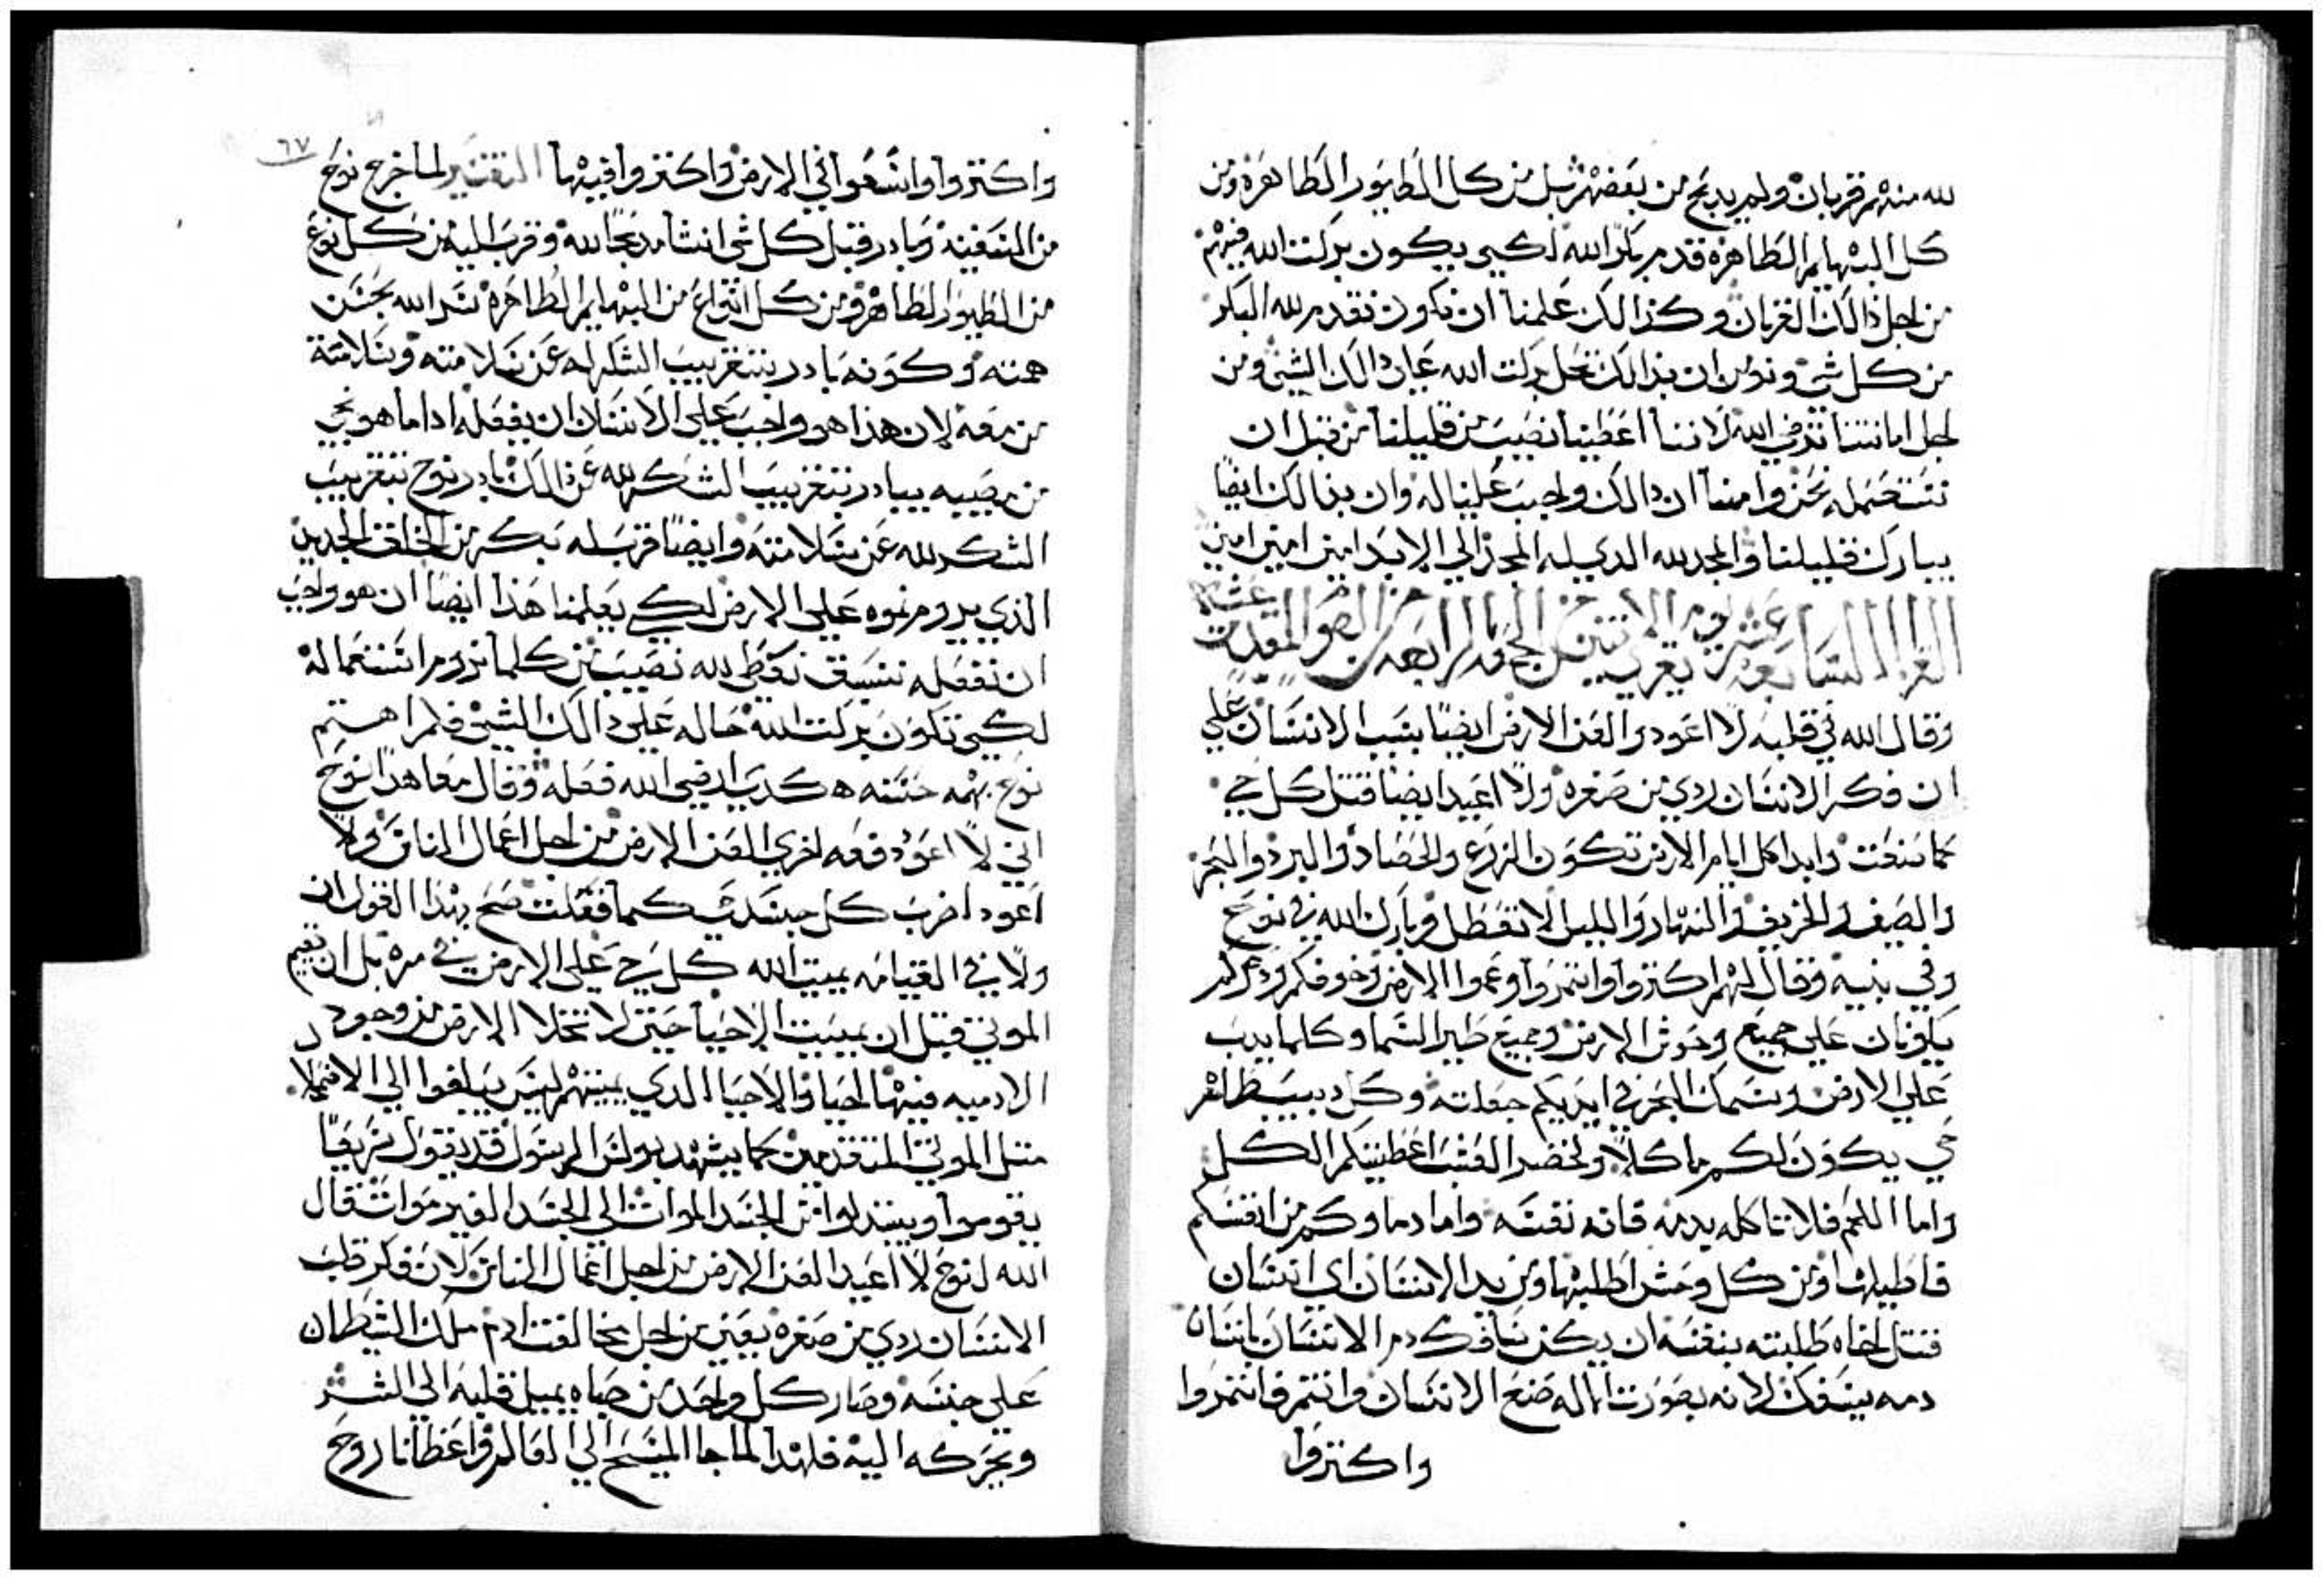 لله منهم قربان ولم يدبح من بعضهم بل من كل الطيور الطاهرة ومن
كل البهايم الطاهرة قدم بكر الله لكيي يكون بركت الله فيهم
من اجل ذالك القربان وكذالك علمنا ان نكون نقدم لله البكر
من كل شي ونومن ان بذالك تحل بركت الله عليّ دالك الشي ومن
اجل امانتنا نرضي الله لاننا اعطينا نصيب من قليلنا من قبل ان
نستعمله نحن وامنا ان دالك واجب علينا له وان بذالك ايضا
يبارك قليلنا والمجد لله الدي له المجد الي الابد امين امين امين
القراه السابعه عشر يوم الاتنين من الجمعه الرابعه من الصوم المقدس
وقال الله في قلبه لا اعود والعن الارض ايضا بسبب الانسان علي
ان فكر الانسان ردي من صغره ولا اعيد ايضا قتل كل حي
كما صنعت وابدا كل ايام الارض تكون الزرع والحصاد والبرد والحر
والصيف والخريف والنهار والليل لا تعطل وبارك الله في نوح
وفي بنيه وقال لهم اكتروا وانتمروا وعموا الارض وخوفكم ودعركم
يكونان علي جميع وحوش الارض وجميع طير السما وكلما يدب
علي الارض وسمك البحر في ايديكم جعلته وكل دبيب طاهر
حي يكون لكم ماكلا ولخضر العشب اعطيتكم الكل
واما اللحم فلا تاكله بدمه فانه نفسه واما دماوكم من انفسكم
فاطلبها ومن كل وحش اطلبها ومن يد الانسان اي انسان
قتل اخاه طلبته بنفسه ان يكن سافك دم الانسان بانسان
دمه يسفك لانه بصورت الاله صنع الانسان وانتم فانتمروا
واكتروا
٦٧
واكتروا واسعوا في الارض واكتروا فيها التفسير لما خرج نوح
من السفينه وبادر قبل كل شي انشا مدبحا لله وقرب اليه من كل نوع
من الطيور الطاهرة ومن كل انواع من البهايم الطاهره سر الله بحسن
همته وكونه بادر بتقريب الشكر له عن سلامته وسلامة
من معه لان هذا هو واجب علي الانسان ان يفعله ادا ما هو نجي
من مصيبه يبادر بتقريب الشكر لله عن ذالك بادر نوح بتقريب
الشكر لله عن سلامته وايضا قرب له بكر من الخلق الجديد
الذي يروم نموه علي الارض لكي يعلمنا هذا ايضا ان هو واجب
ان نفعله نسبق نعطي لله نصيب من كلما نروم استعماله
لكيي تكون بركت الله حاله علي دالك الشي فلما اهتم
نوح بهمه حسنه هكدي ارضي الله فعله وقال معاهدا نوح
اني لا اعود دفعه اخري العن الارض من اجل اعمال الناس ولا
اعود اضرب كل جسدي كما فعلت صح بهذا القول ان
ولا في القيامه يميت الله كل حي علي الارض في مره بل ان يقيم
الموتي قبل ان يميت الاحيا حتي لا تخلا الارض من وجود
الادميه فيها الحيا والاحيا الدي يميتهم ليس يبلغوا الي الاضمحلال
متل الموتي المتقدمين كما يشهد بولس الرسول قد يقول سريعا
يقوموا ويبدلوا من الجسد الموات الي الجسد الغير موات قال
الله لنوح لا اعيد العن الارض من اجل اعمال الناس لان فكر قلب
الانسان ردي من صغره يعني من اجل مخالفت ادم ملك الشيطان
علي جنسه وصار كل واحد من صباه يميل قلبه الي الشر
وتحركه اليه فلهدا لما جا المسيح الي العالم واعطانا روح